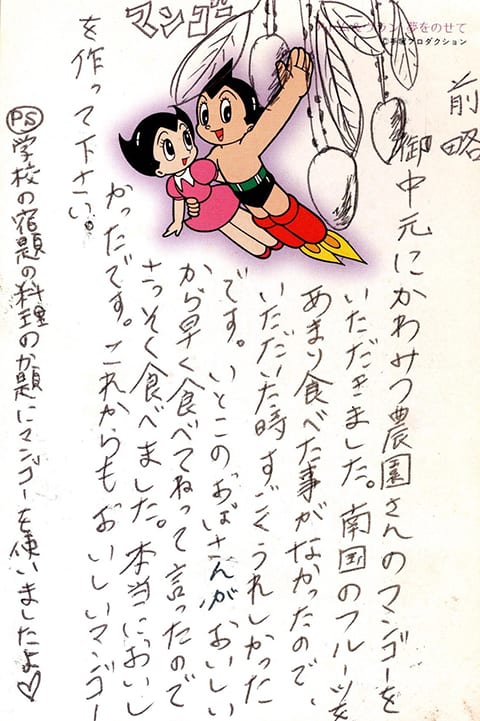 マンゴー
夢をのせて
©手塚プロダクション
前略
御中元にかわみつ農園さんのマンゴーを
いただきました。南国のフルーツを
あまり食べた事がなかったので、
いただいた時すごくうれしかった
です。いとこのおばさんがおいしい
から早く食べてねって言ったので
さっそく食べました。本当においし
かったです。これからもおいしいマンゴー
を作って下さい。
PS学校の宿題の料理のか題にマンゴーを使いましたよ♡